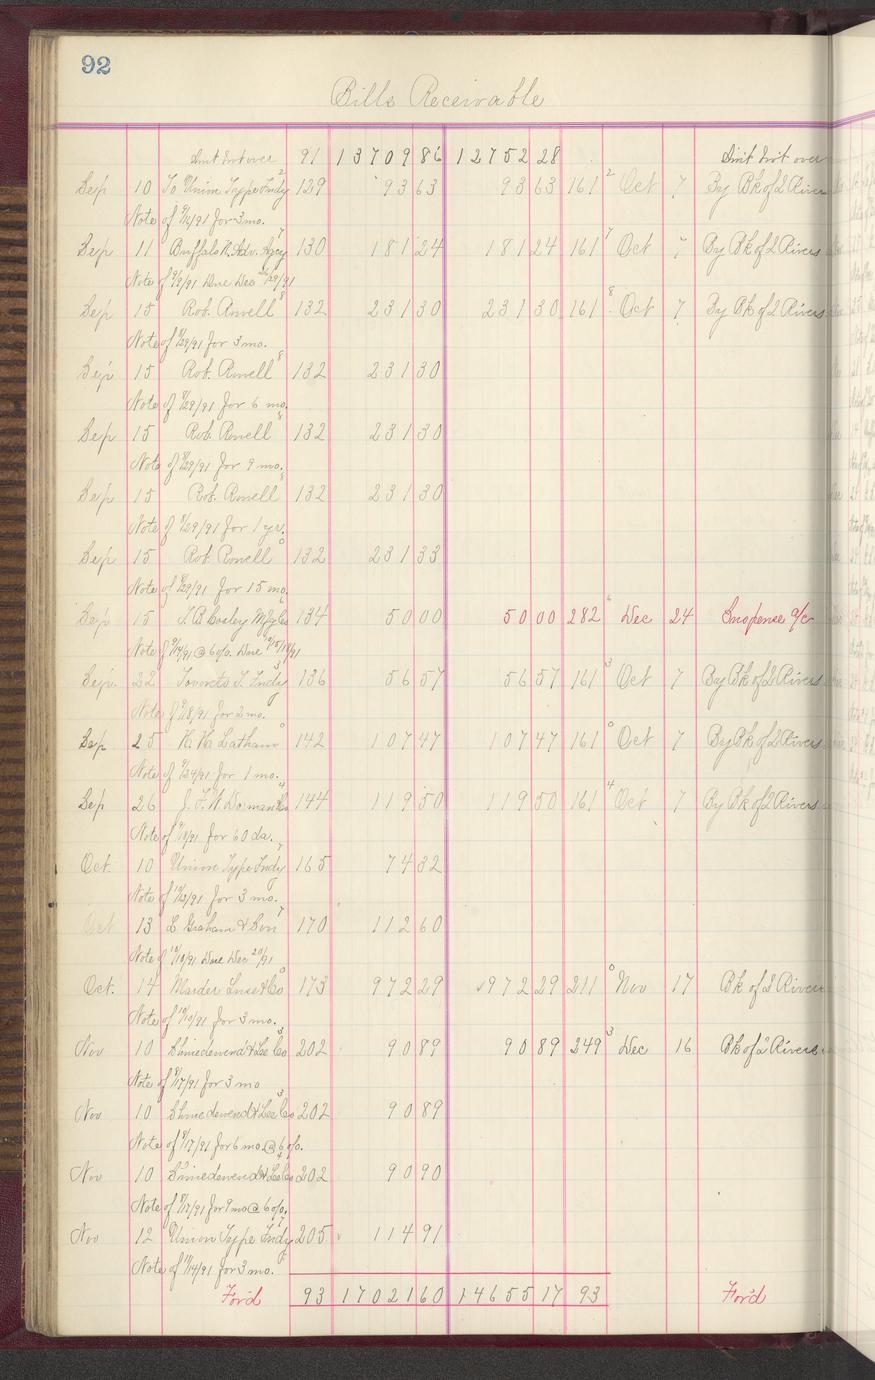 92
Bills Receivable
Amt brt over 91 13709 86 12752 28 Amt brt over
Sep 10 To Union Type Fndy 129 93 63 93 63 161 Oct 7 By Bk of 2 Rivers
Note of 9/1/91 for 3 mo.
Sep 11 Buffalo N. Adv. Agcy 130 181 24 181 24 161 Oct 7 By Bk of 2 Rivers
Note of 9/9/91 Due Dec /91
Sep 15 Rob. Rowell 132 231 30 231 30 161 Oct 7 By Bk of 2 Rivers
Note of 8/29/91 for 3 mo.
Sep 15 Rob. Rowell 132 231 30
Note of 8/29/91 for 6 mo.
Sep 15 Rob. Rowell 132 231 30
Note of 8/29/91 for 9 mo.
Sep 15 Rob. Rowell 132 231 30
Note of 8/29/91 for 1 yr.
Sep 15 Rob. Rowell 132 231 33
Note of 8/29/91 for 15 mo.
Sep 15 T. B. Cosley Mfg Co 134 50 00 50 00 282 Dec 24 Suspense a/c
Note of 9/14/91 @ 6 o/o. Due
Sep. 22 Toronto T. Fndy 136 56 57 56 57 161 Oct 7 By Bk of 2 Rivers
Note of 9/18/91 for 2 mo.
Sep 25 H. H. Latham 142 107 47 107 47 161 Oct 7 By Bk of 2 Rivers
Note of 9/24/91 for 1 mo.
Sep 26 J. F. W. Dorman Co 144 119 50 119 50 161 Oct 7 By Bk of 2 Rivers
Note of /91 for 60 da.
Oct. 10 Union Type Fndy 165 74 32
Note of /91 for 3 mo.
Oct 13 L. Graham & Son 170 112 60
Note of 10/10/91 Due Dec 20/91
Oct. 14 Marder Luse & Co 173 972 29 √972 29 211 Nov 17 Bk of 2 Rivers
Note of 10/10/91 for 3 mo.
Nov 10 Shniedewend & Lee Co 202 90 89 90 89 249 Dec 16 Bk of 2 Rivers
Note of 8/17/91 for 3 mo
Nov 10 Shniedewend & Lee Co 202 90 89
Note of 8/17/91 for 6 mo @ 6 o/o.
Nov 10 Shniedewend & Lee Co 202 90 90
Note of 8/17/91 for 9 mo @ 6 o/o.
Nov 12 Union Type Fndy 205 114 91
Note of 11/4/91 for 3 mo.
For'd 93 17021 60 14655 17 93 For'd